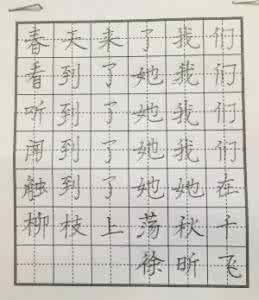 春天来了我们
看到了她我们
听到了她我们
闻到了她我们
触到了她她在
柳枝上荡秋千
徐昕飞